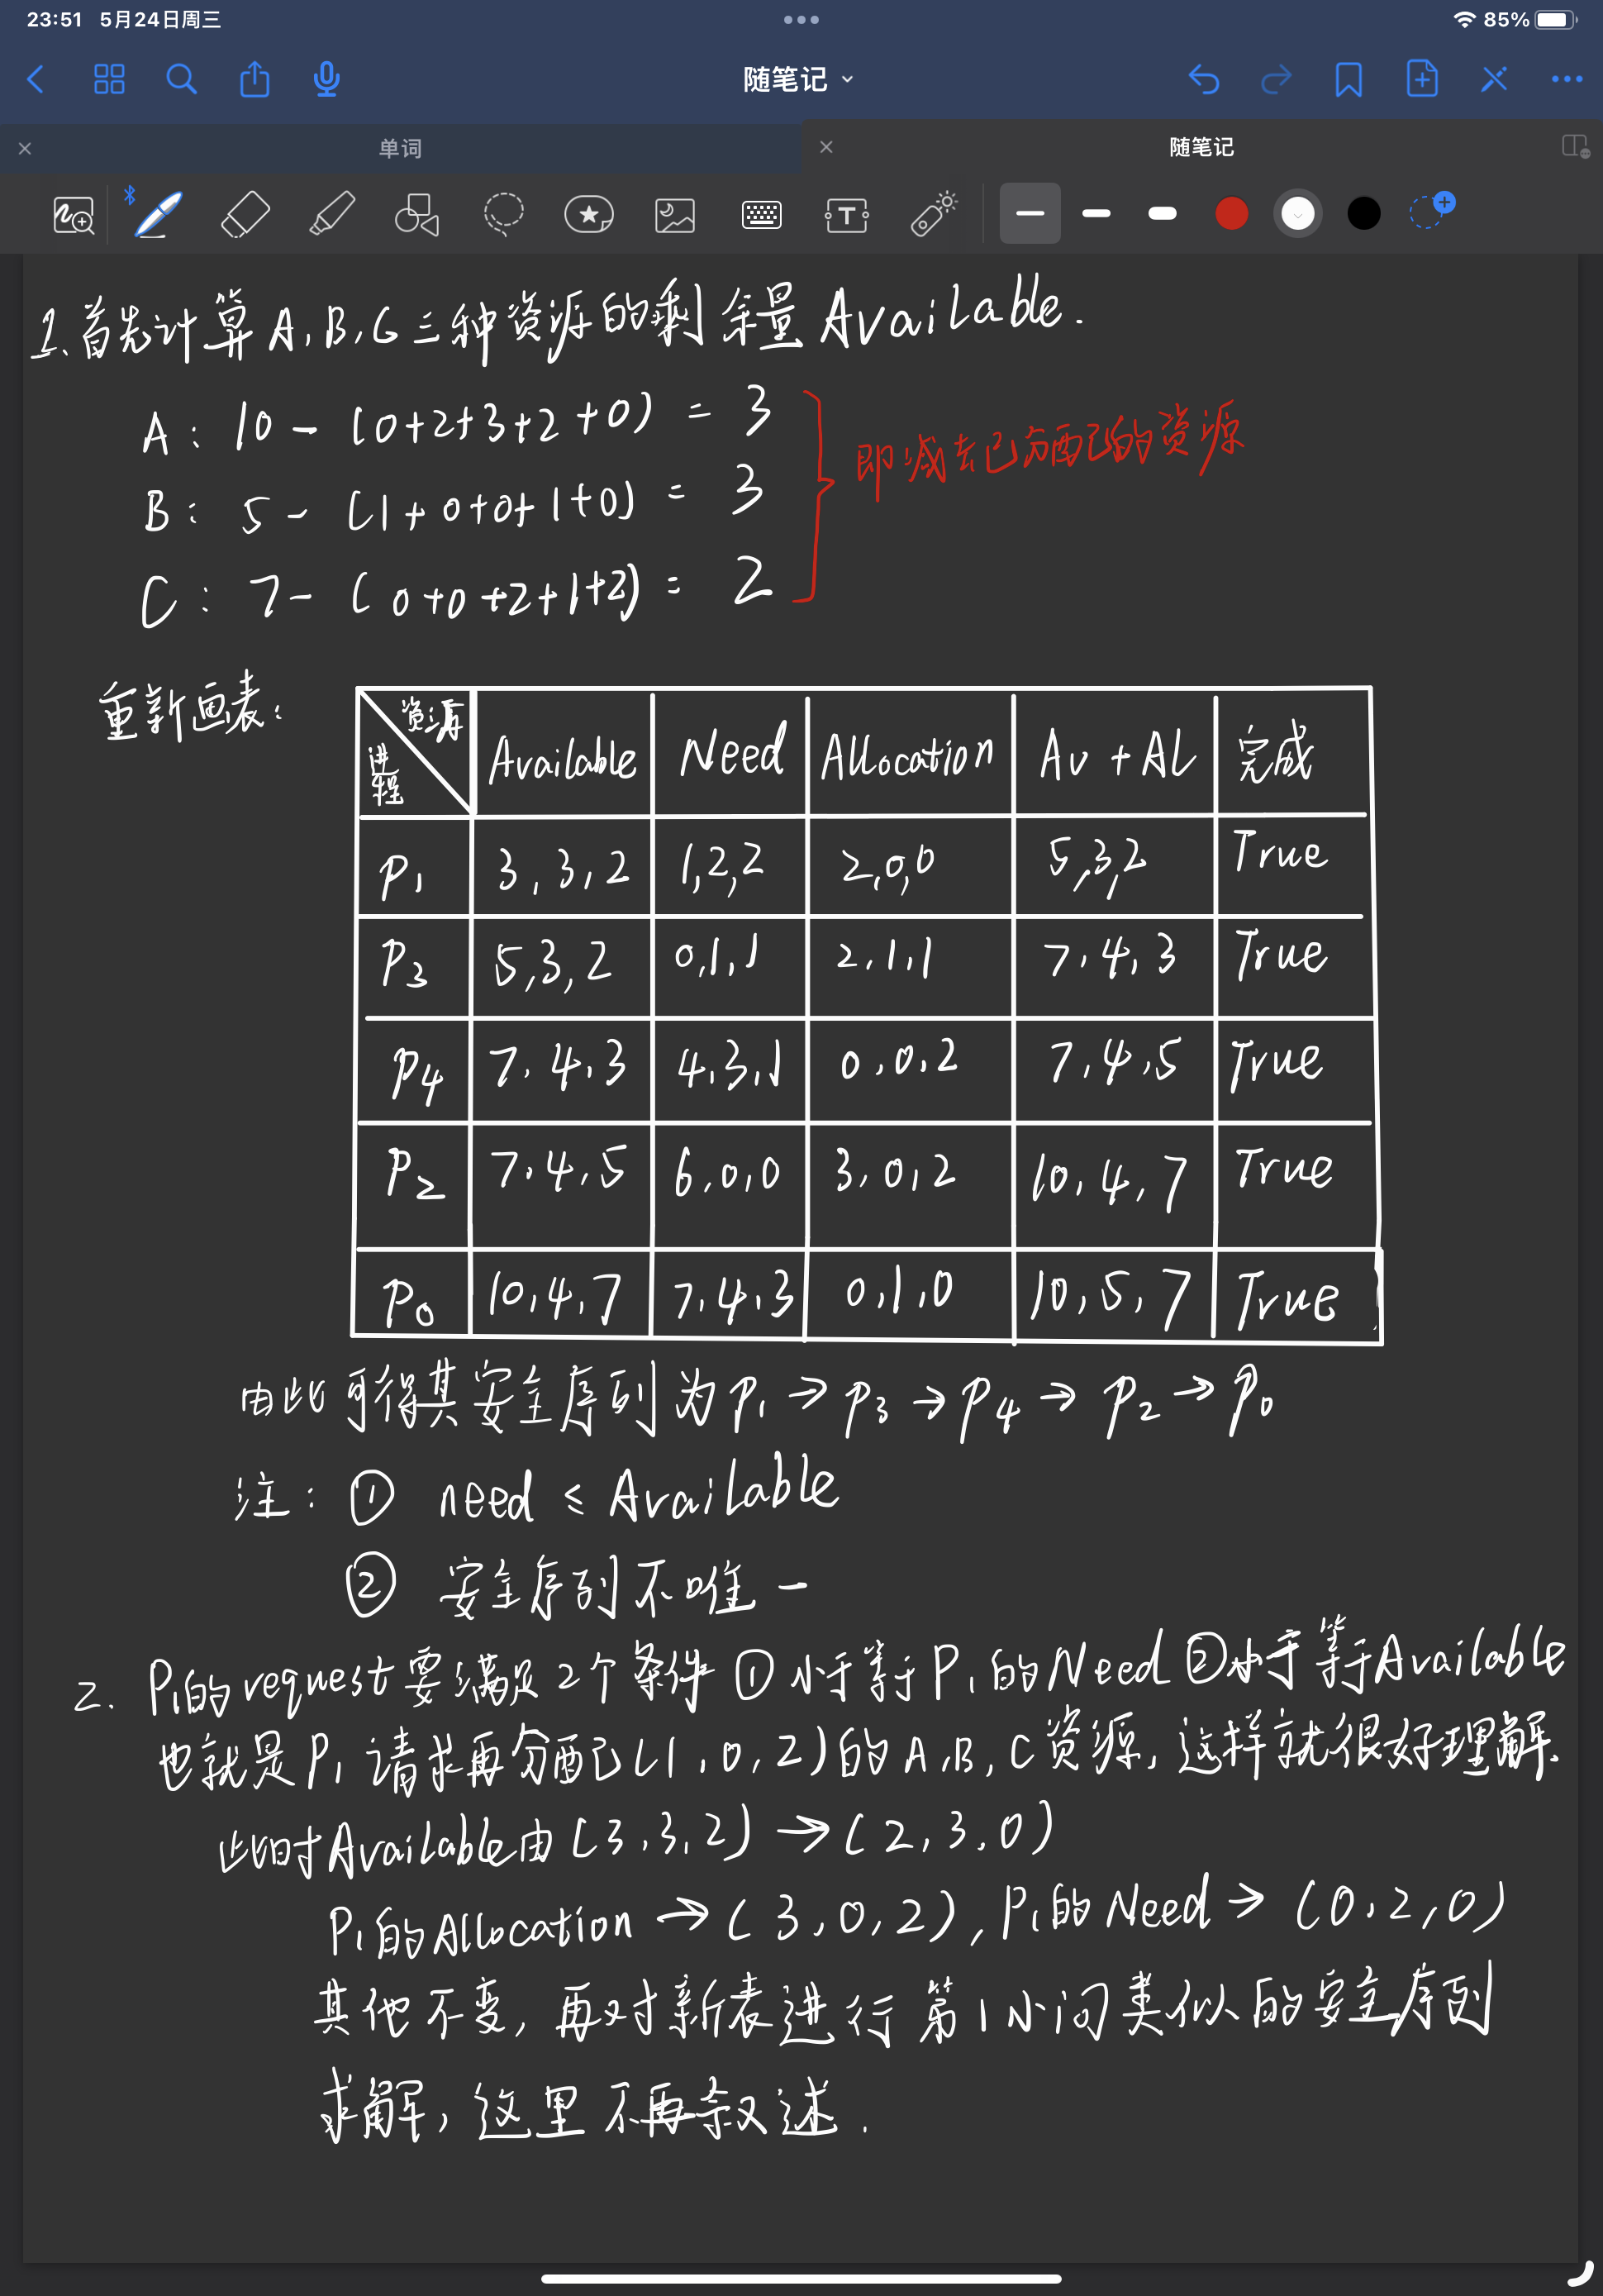 23:51 5月24日周三
85%
随笔记
单词
随笔记
1.首先计算A,B,C三种资源的剩余量Available.
A: 10-(0+2+3+2+0)=3
即减去已分配的资源
B: 5-(1+0+0+1+0)=3
C: 7-(0+0+2+1+2)=2
重新画表:
资源 进程 Available Need Allocation Av+AL 完成
P1 3,3,2 1,2,2 2,0,0 5,3,2 True
P3 5,3,2 0,1,1 2,1,1 7,4,3 True
P4 7,4,3 4,3,1 0,0,2 7,4,5 True
P2 7,4,5 6,0,0 3,0,2 10,4,7 True
P0 10,4,7 7,4,3 0,1,0 10,5,7 True
由此可得其安全序列为P1→P3→P4→P2→P0
注:① need ≤ Available
② 安全序列不唯一
2. P1的request要满足2个条件①小于等于P1的Need②小于等于Available
也就是P1请求再分配(1,0,2)的A,B,C资源,这样就很好理解.
此时Available由(3,3,2)→(2,3,0)
P1的Allocation→(3,0,2),P1的Need→(0,2,0)
其他不变,再对新表进行第1小问类似的安全序列
求解,这里不再叙述.